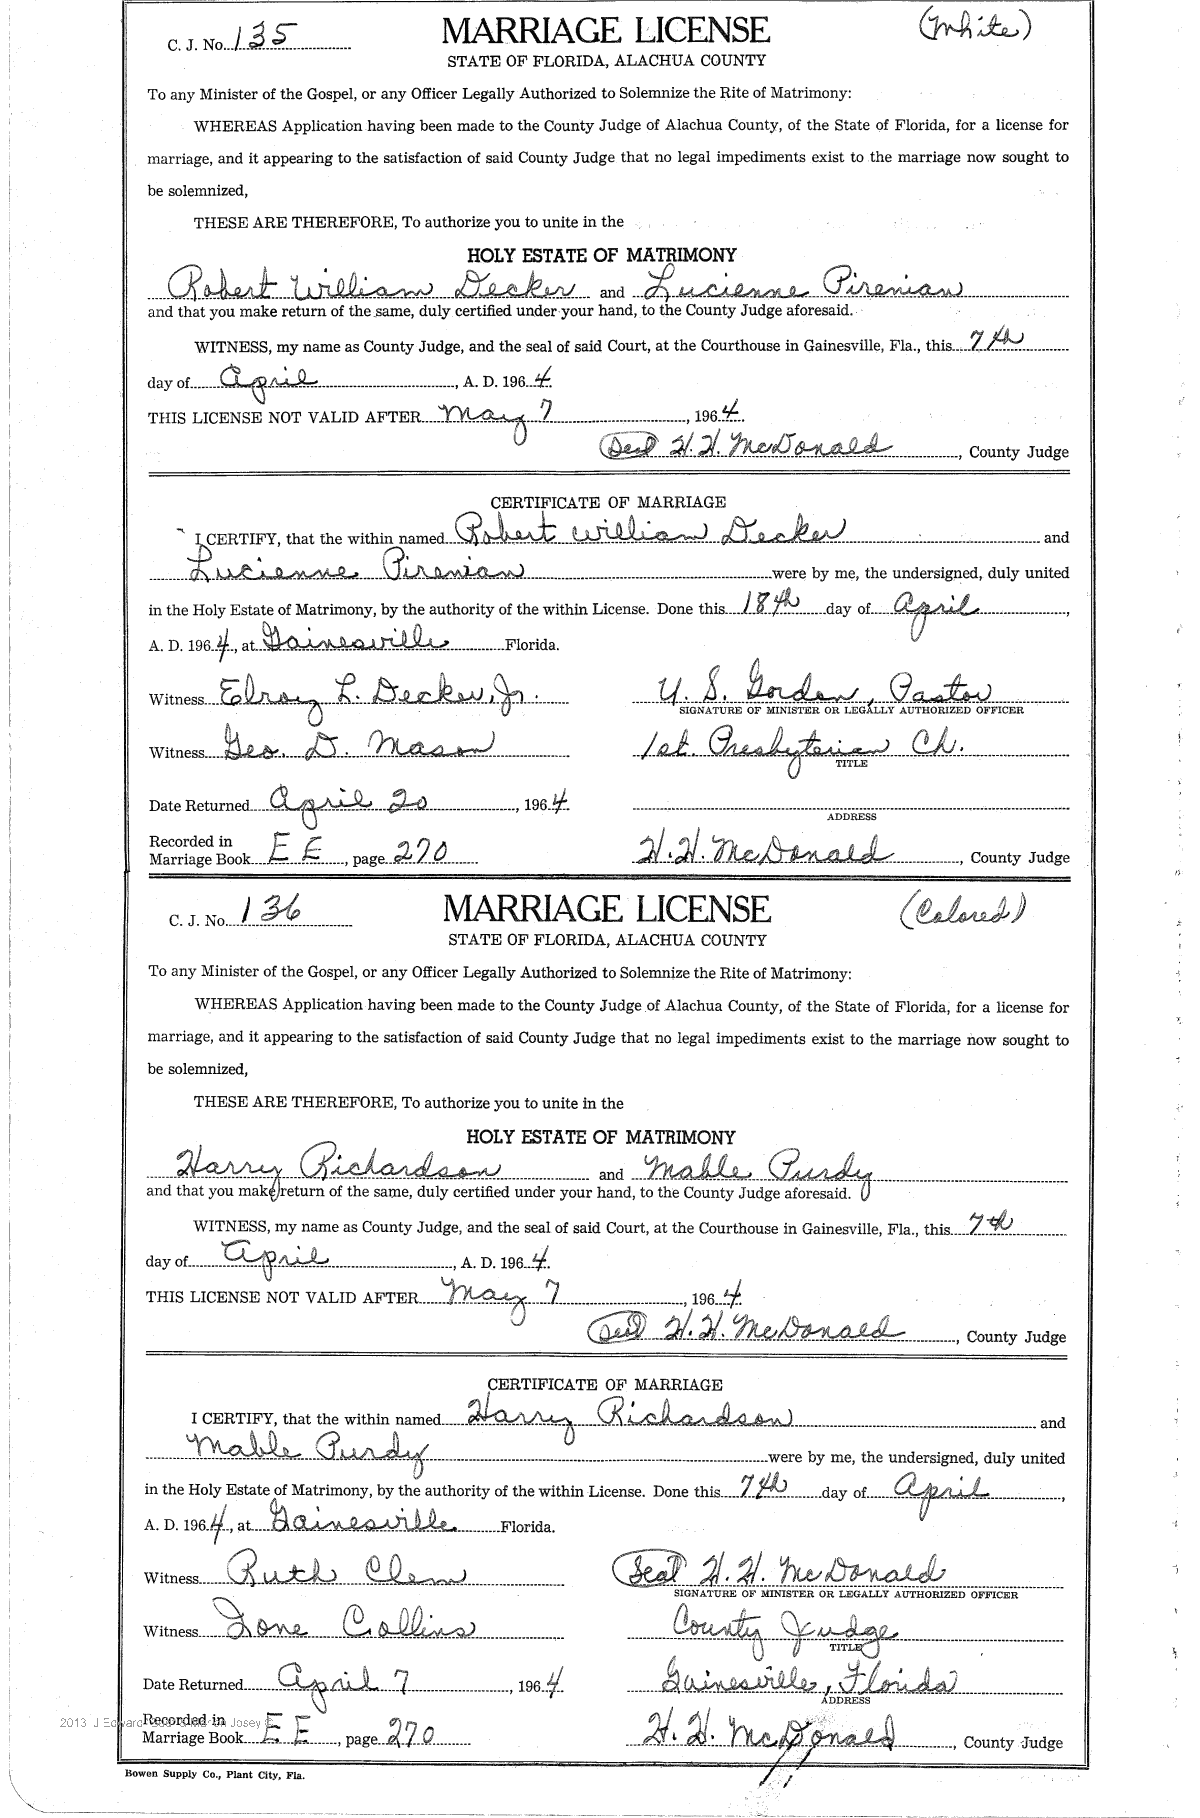 C. J. No. 135 MARRIAGE LICENSE (White)
STATE OF FLORIDA, ALACHUA COUNTY
To any Minister of the Gospel, or any Officer Legally Authorized to Solemnize the Rite of Matrimony:
WHEREAS Application having been made to the County Judge of Alachua County, of the State of Florida, for a license for
marriage, and it appearing to the satisfaction of said County Judge that no legal impediments exist to the marriage now sought to
be solemnized,
THESE ARE THEREFORE, To authorize you to unite in the
HOLY ESTATE OF MATRIMONY
Robert William Decker and Lucienne Pirenian
and that you make return of the same, duly certified under your hand, to the County Judge aforesaid.
WITNESS, my name as County Judge, and the seal of said Court, at the Courthouse in Gainesville, Fla., this 7th
day of April, A. D. 1964.
THIS LICENSE NOT VALID AFTER May 7, 1964.
Seal H. H. McDonald, County Judge
CERTIFICATE OF MARRIAGE
I CERTIFY, that the within named Robert William Decker and
Lucienne Pirenian were by me, the undersigned, duly united
in the Holy Estate of Matrimony, by the authority of the within License. Done this 18th day of April,
A. D. 1964, at Gainesville Florida.
Witness Elroy L. Decker, Jr. U. S. Gordon, Pastor
SIGNATURE OF MINISTER OR LEGALLY AUTHORIZED OFFICER
Witness Geo. D. Mason 1st. Presbyterian Ch.
TITLE
Date Returned April 20, 1964.
ADDRESS
Recorded in
Marriage Book E E, page 270 H. H. McDonald, County Judge
C. J. No. 136 MARRIAGE LICENSE (Colored)
STATE OF FLORIDA, ALACHUA COUNTY
To any Minister of the Gospel, or any Officer Legally Authorized to Solemnize the Rite of Matrimony:
WHEREAS Application having been made to the County Judge of Alachua County, of the State of Florida, for a license for
marriage, and it appearing to the satisfaction of said County Judge that no legal impediments exist to the marriage now sought to
be solemnized,
THESE ARE THEREFORE, To authorize you to unite in the
HOLY ESTATE OF MATRIMONY
Harry Richardson and Mable Purdy
and that you make return of the same, duly certified under your hand, to the County Judge aforesaid.
WITNESS, my name as County Judge, and the seal of said Court, at the Courthouse in Gainesville, Fla., this 7th
day of April, A. D. 1964.
THIS LICENSE NOT VALID AFTER May 7, 1964.
Seal H. H. McDonald, County Judge
CERTIFICATE OF MARRIAGE
I CERTIFY, that the within named Harry Richardson and
Mable Purdy were by me, the undersigned, duly united
in the Holy Estate of Matrimony, by the authority of the within License. Done this 7th day of April,
A. D. 1964, at Gainesville Florida.
Witness Ruth Clem Seal H. H. McDonald
SIGNATURE OF MINISTER OR LEGALLY AUTHORIZED OFFICER
Witness Ione Collins County Judge
TITLE
Date Returned April 7, 1964. Gainesville, Florida
ADDRESS
2013 J Edward Josey
Recorded in
Marriage Book E E, page 270 H. H. McDonald, County Judge
Bowen Supply Co., Plant City, Fla.